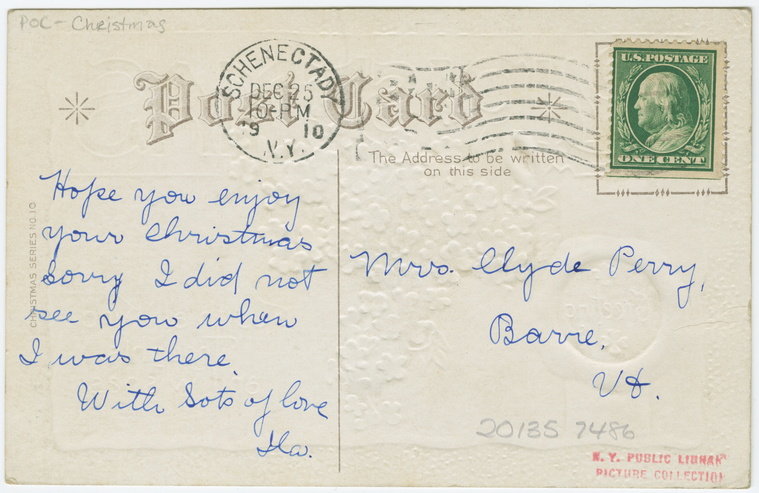 POC - Christmas
Post Card
SCHENECTADY
DEC 25
10-PM
19 10
N.Y.
U.S. POSTAGE
ONE CENT
The Address to be written
on this side
CHRISTMAS SERIES NO. 10
Hope you enjoy
your Christmas
Sorry I did not
see you when
I was there.
With Lots of love
Mrs. Clyde Perry,
Barre,
Vt.
2013S 7486
N.Y. PUBLIC LIBRARY
PICTURE COLLECTION